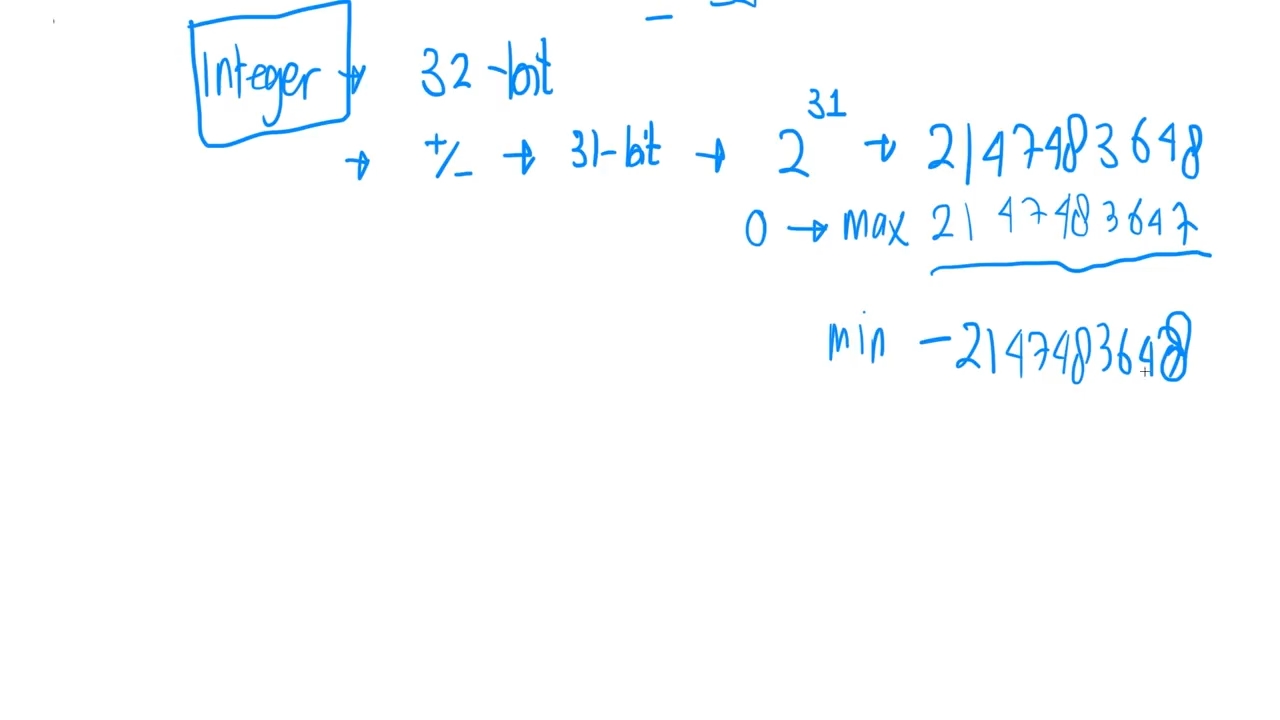 Integer → 32-bit
→ +/- → 31-bit → 2^31 → 2147483648
0 → max 2147483647
min -2147483648